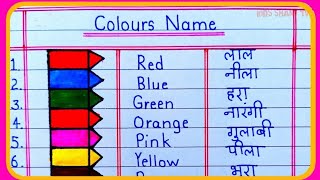 KIDS SMART TV
Colours Name
1. Red लाल
2. Blue नीला
3. Green हरा
4. Orange नारंगी
5. Pink गुलाबी
6. Yellow पीला